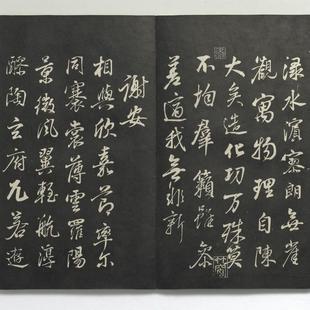 淥水濱寥朗無崖
觀寓物理自陳
大矣造化功万殊莫
不均羣籟雖叅
差適我無非新
謝安
相與欣嘉節率尔
同褰裳薄雲羅陽
景微風翼輕航淳
醪陶玄府兀若遊